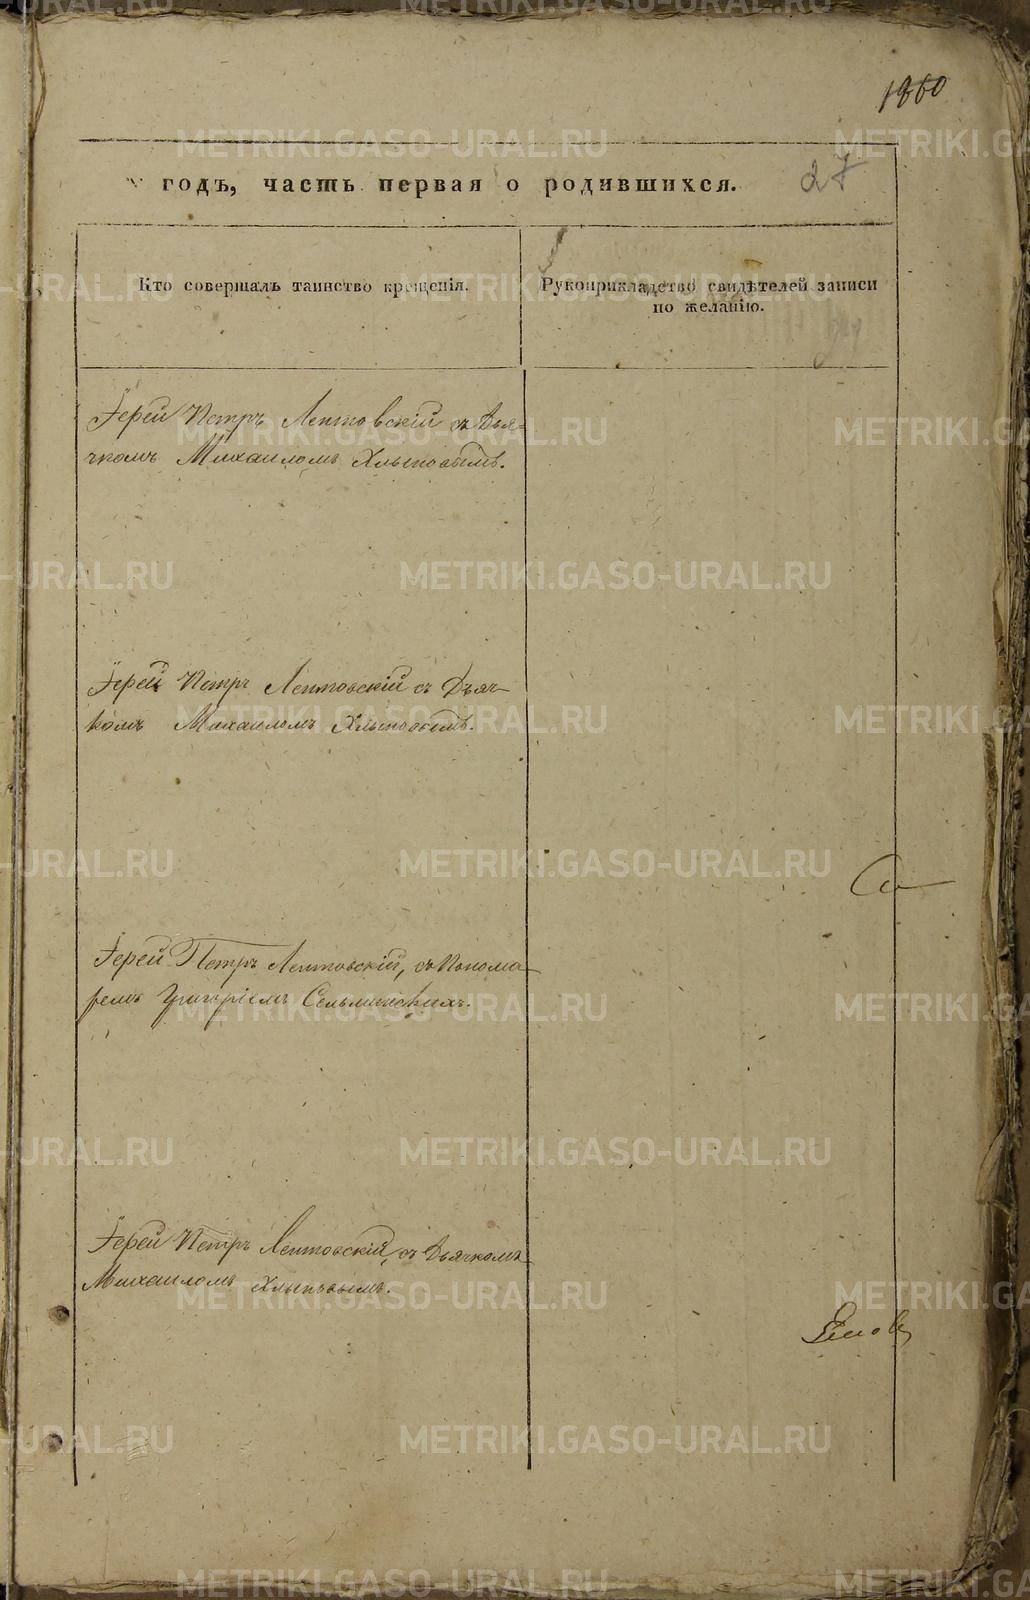 1860
27
годъ, часть первая о родившихся.
Кто совершалъ таинство крещенія.
Рукоприкладство свидѣтелей записи
по желанію.
Іерей Петръ Лептовскій съ Дья-
чкомъ Михаиломъ Хлыновымъ.
Іерей Петръ Лептовскій съ Дьяч-
комъ Михаиломъ Хлыновымъ.
Іерей Петръ Лептовскій, съ Понома-
ремъ Григоріемъ
Іерей Петръ Лептовскій, съ Дьячкомъ
Михаиломъ Хлыновымъ.
METRIKI.GASO-URAL.RU